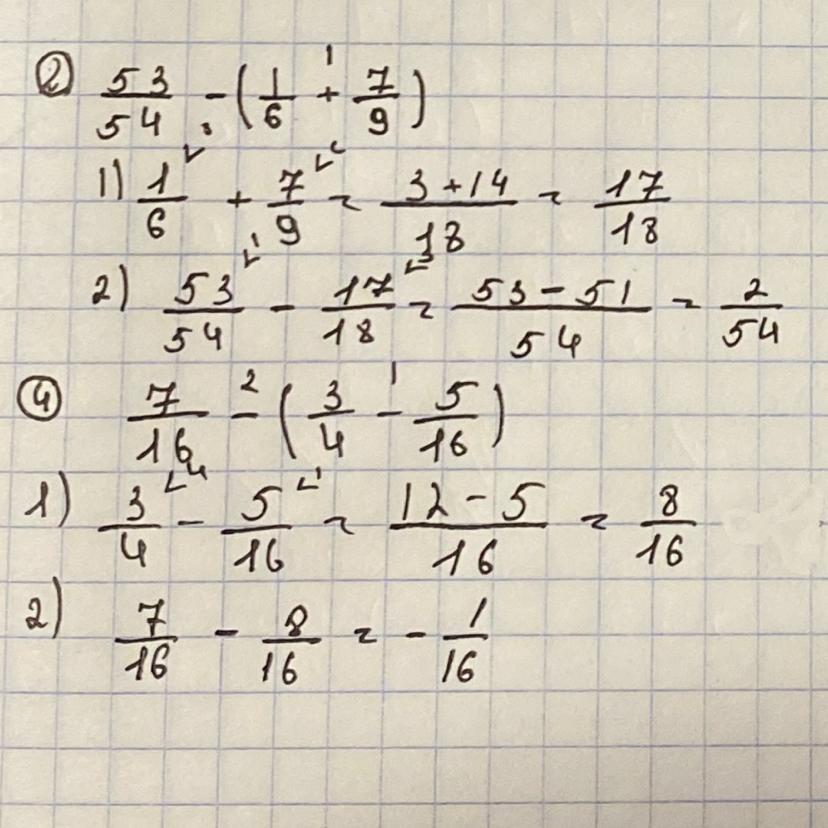 ② 53/54 - (1/6 +¹ 7/9)
1) 1/6 + 7/9 = (3+14)/18 = 17/18
2) 53/54 - 17/18 = (53-51)/54 = 2/54
④ 7/16 -² (3/4 -¹ 5/16)
1) 3/4 - 5/16 = (12-5)/16 = 8/16
2) 7/16 - 8/16 = - 1/16